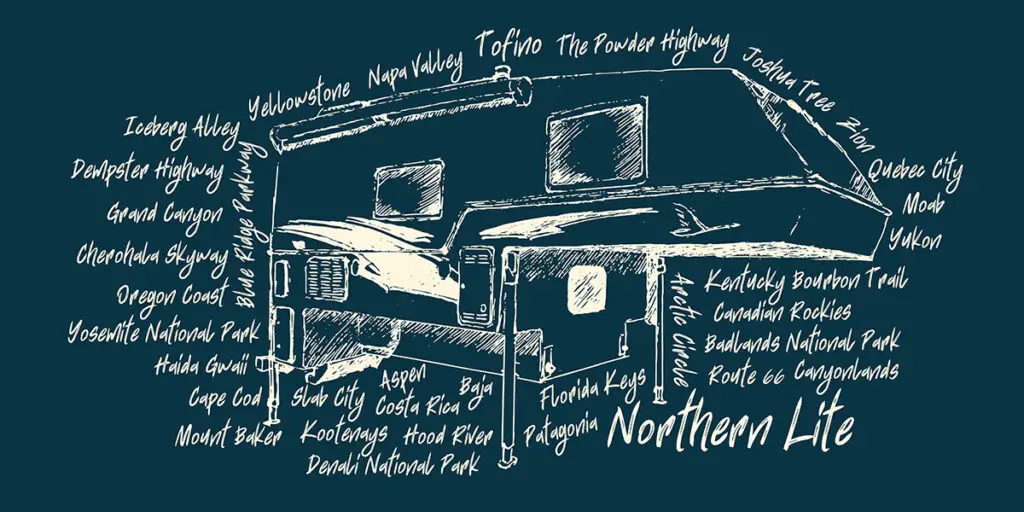 Tofino
The Powder Highway
Napa Valley
Yellowstone
Joshua Tree
Zion
Iceberg Alley
Dempster Highway
Grand Canyon
Cherohala Skyway
Oregon Coast
Yosemite National Park
Haida Gwaii
Cape Cod
Mount Baker
Blue Ridge Parkway
Quebec City
Moab
Yukon
Arctic Circle
Kentucky Bourbon Trail
Canadian Rockies
Badlands National Park
Route 66 Canyonlands
Slab City
Aspen
Costa Rica
Baja
Florida Keys
Kootenays
Hood River
Patagonia
Denali National Park
Northern Lite